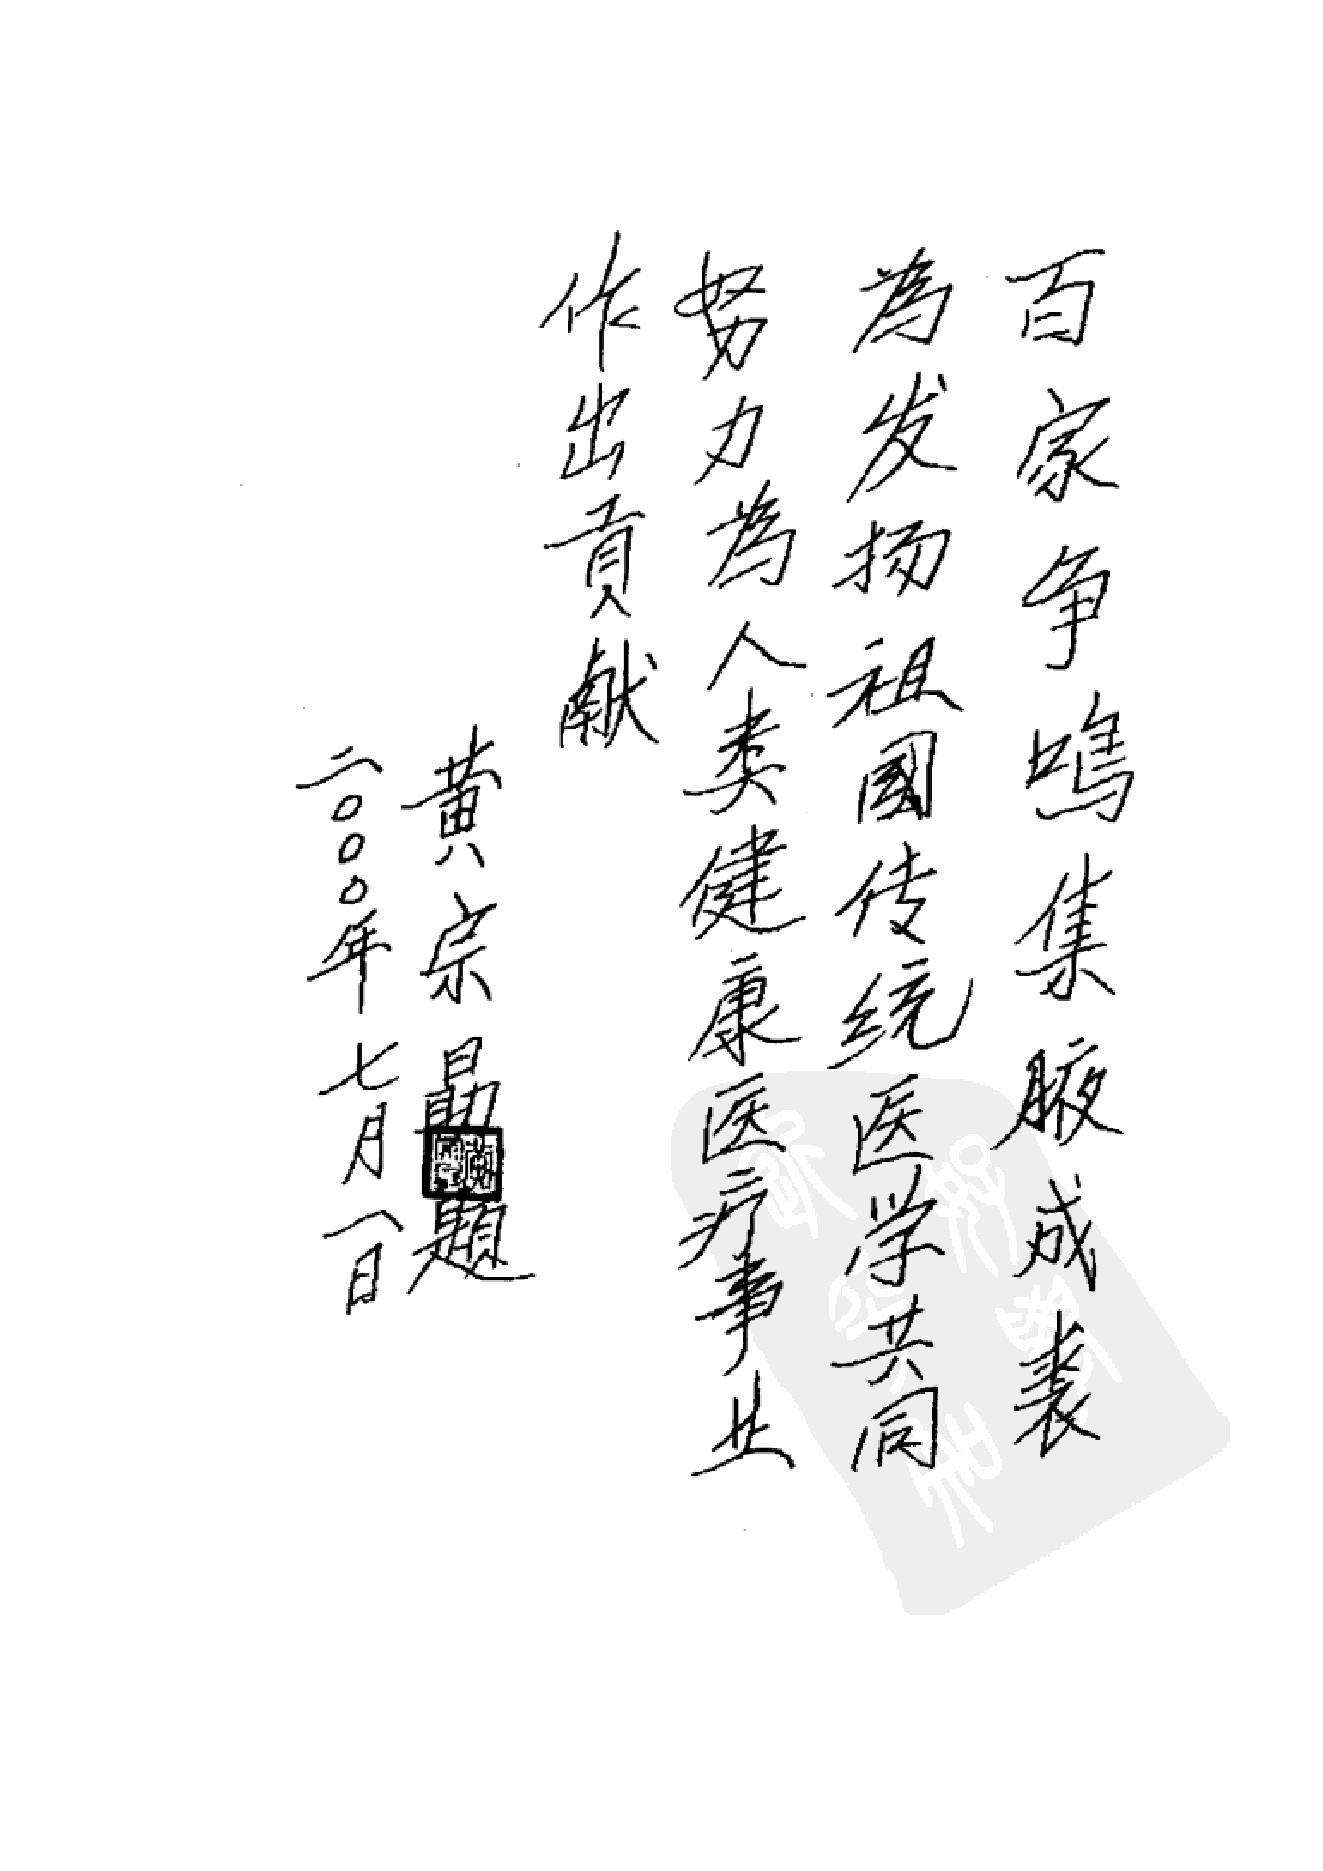 百家争鳴集腋成裘
為发扬祖國传统医学共同
努力為人类健康医疗事业
作出貢献
黄宗勗題
二〇〇〇年七月八日